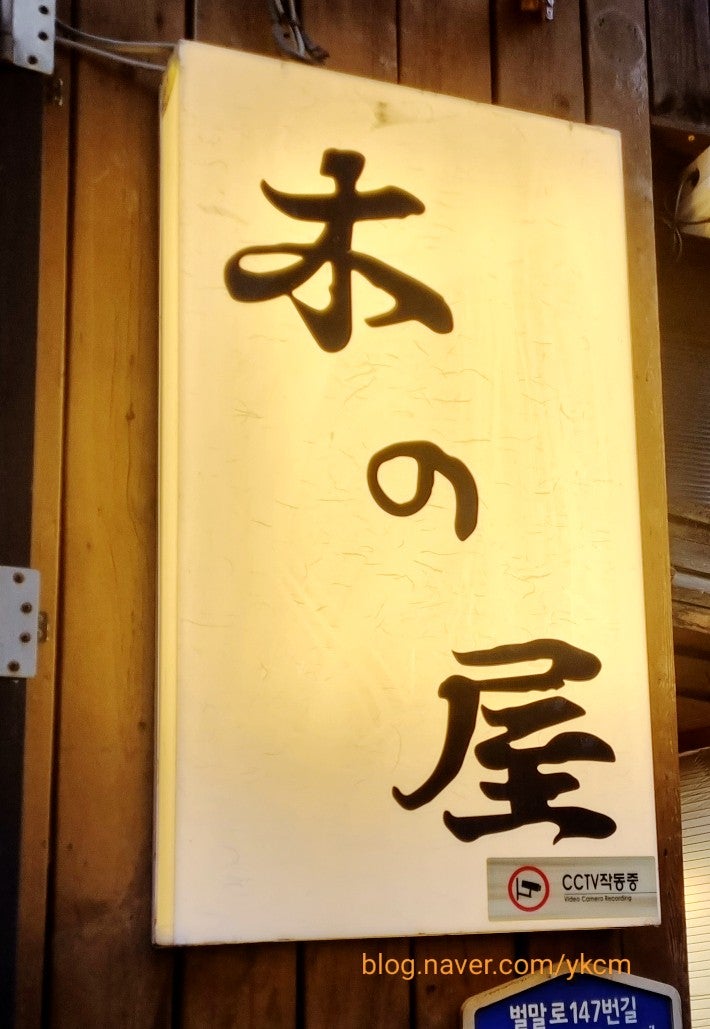 木の屋
CCTV작동중
Video Camera Recording
blog.naver.com/ykcm
벌말로147번길